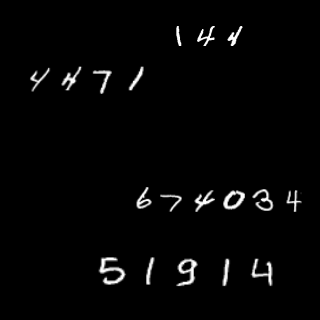 144
4471
674034
51914